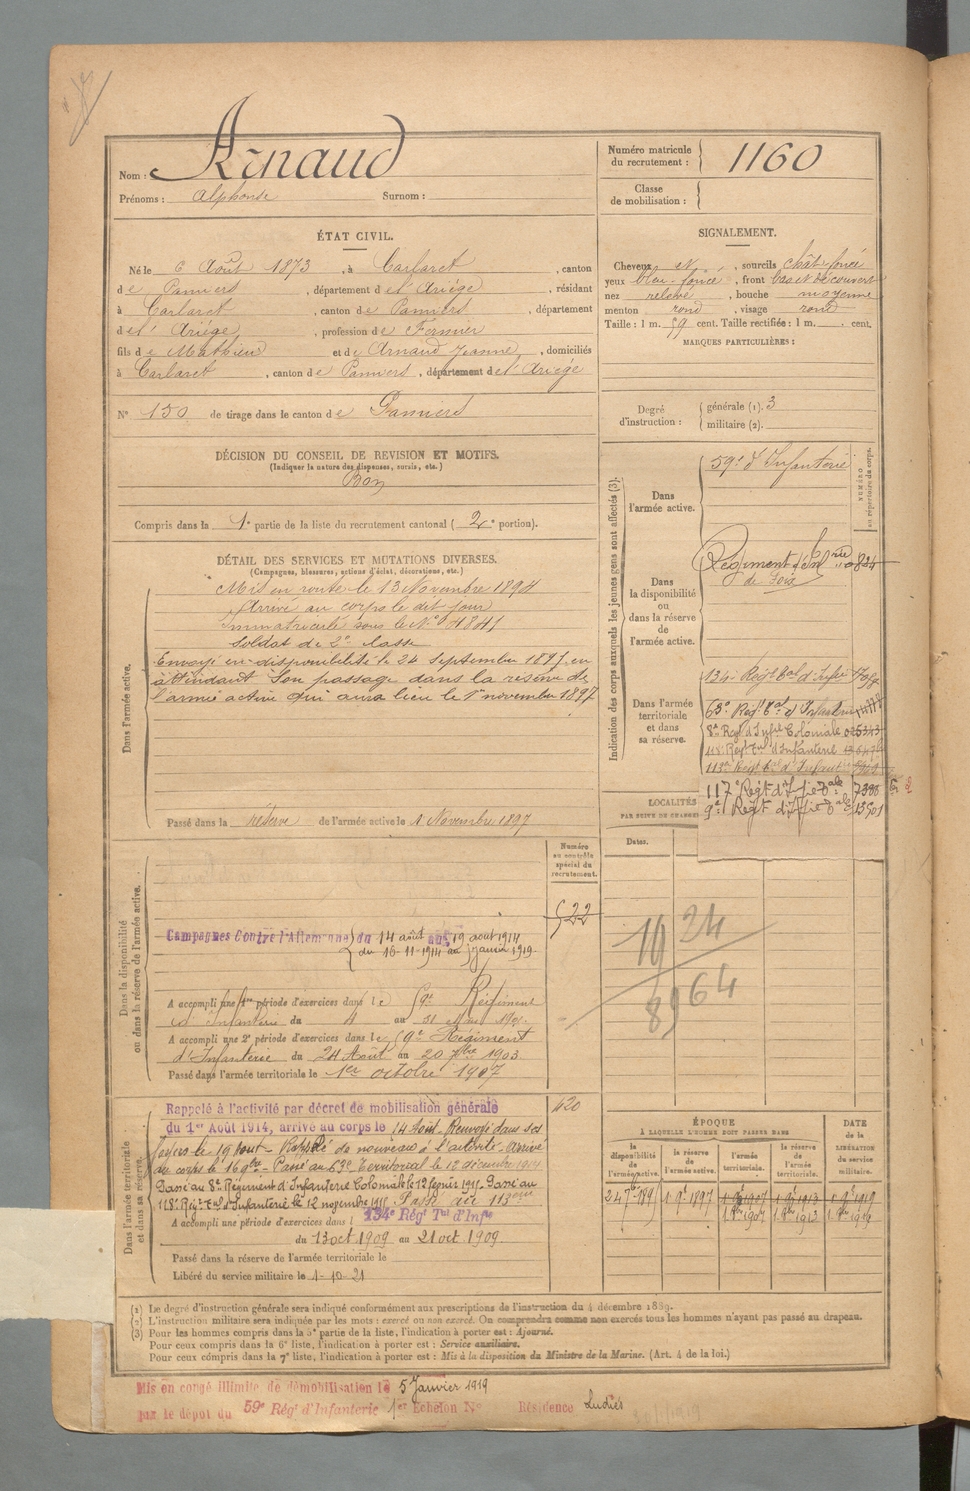 Nom : Arnaud
Prénoms : Alphonse Surnom :
Numéro matricule du recrutement : 1160
Classe de mobilisation :
ÉTAT CIVIL.
Né le 6 Août 1873, à Carlaret, canton
de Pamiers, département de l'Ariège, résidant
à Carlaret, canton de Pamiers, département
de l'Ariège, profession de Fermier
fils de Mathieu et de Arnaud Jeanne, domiciliés
à Carlaret, canton de Pamiers, département de l'Ariège
N° 150 de tirage dans le canton de Pamiers
SIGNALEMENT.
Cheveux N, sourcils chât. foncé
yeux bleu-foncé, front bas et découvert
nez relevé, bouche moyenne
menton rond, visage rond
Taille : 1 m. 59 cent. Taille rectifiée : 1 m. cent.
MARQUES PARTICULIÈRES :
Degré d'instruction : générale (1). 3
militaire (2).
DÉCISION DU CONSEIL DE REVISION ET MOTIFS.
(Indiquer la nature des dispenses, sursis, etc.)
Bon
Compris dans la 1e partie de la liste du recrutement cantonal (2e portion).
DÉTAIL DES SERVICES ET MUTATIONS DIVERSES.
(Campagnes, blessures, actions d'éclat, décorations, etc.)
Dans l'armée active.
Mis en route le 13 Novembre 1894
Arrivé au corps le dit jour
Immatriculé sous le N° 4841
Soldat de 2e classe
Envoyé en disponibilité le 24 septembre 1897 en
attendant son passage dans la réserve de
l'armée active qui aura lieu le 1er novembre 1897
Passé dans la réserve de l'armée active le 1 Novembre 1897
Indication des corps auxquels les jeunes gens sont affectés (3).
NUMÉRO au répertoire du corps.
Dans l'armée active.
59e d'Infanterie
Dans la disponibilité ou dans la réserve de l'armée active.
Régiment d'Inf rie 0834
de Foix
Dans l'armée territoriale et dans sa réserve.
134e Régt Tal d'Infie
63e Régt Tal d'Infanterie
8e Regt d'Infie Coloniale 025343
118e Regt Tal d'Infanterie
113e Régt Tal d'Infanterie
117e Régt d'Infie Tale 7398
9e Régt d'Infie Tale 13501
LOCALITÉS
PAR SUITE DE CHANGE
Dates.
Dans la disponibilité ou dans la réserve de l'armée active.
Numéro au contrôle spécial du recrutement.
522
Campagnes Contre l'Allemagne du 14 août au 19 août 1914
du 16-11-1914 au janvier 1919.
A accompli une 1re période d'exercices dans le 59e Régiment
d'Infanterie du 4 au 31 Mai
A accompli une 2e période d'exercices dans le 59e Régiment
d'Infanterie du 24 Août au 20 7bre 1903
Passé dans l'armée territoriale le 1er octobre 1907
19 24
89 64
Dans l'armée territoriale et dans sa réserve.
420
Rappelé à l'activité par décret de mobilisation générale
du 1er Août 1914, arrivé au corps le 14 Août. Renvoyé dans ses
foyers le 19 Août - Rappelé de nouveau à l'activité. Arrivé
au corps le 16 9bre - Passé au 63e Territorial le 12 décembre 1914
Passé au 8e Régiment d'Infanterie Coloniale le 12 février 1915. Passé au
118e Régt Tal d'Infanterie le 12 novembre 1915. Passé au 113ème
A accompli une période d'exercices dans l 134e Régt Tal d'Infie
du 13 oct 1909 au 21 oct 1909.
Passé dans la réserve de l'armée territoriale le
Libéré du service militaire le 1-10-21
ÉPOQUE
À LAQUELLE L'HOMME DOIT PASSER DANS
la disponibilité de l'armée active.
la réserve de l'armée active.
l'armée territoriale.
la réserve de l'armée territoriale.
DATE de la LIBÉRATION du service militaire.
24 7bre 1897 1 9e 1897 1 9e 1907 1 9e 1913 1 9e 1919
1 8re 1907 1 8re 1913 1 8re 1919
(1) Le degré d'instruction générale sera indiqué conformément aux prescriptions de l'instruction du 4 décembre 1889.
(2) L'instruction militaire sera indiquée par les mots : exercé ou non exercé. On comprendra comme non exercés tous les hommes n'ayant pas passé au drapeau.
(3) Pour les hommes compris dans la 5e partie de la liste, l'indication à porter est : Ajourné.
Pour ceux compris dans la 6e liste, l'indication à porter est : Service auxiliaire.
Pour ceux compris dans la 7e liste, l'indication à porter est : Mis à la disposition du Ministre de la Marine. (Art. 4 de la loi.)
Mis en congé illimité de démobilisation le 5 Janvier 1919
par le dépôt du 59e Régt d'Infanterie 1er Echelon N° Résidence Ludiès